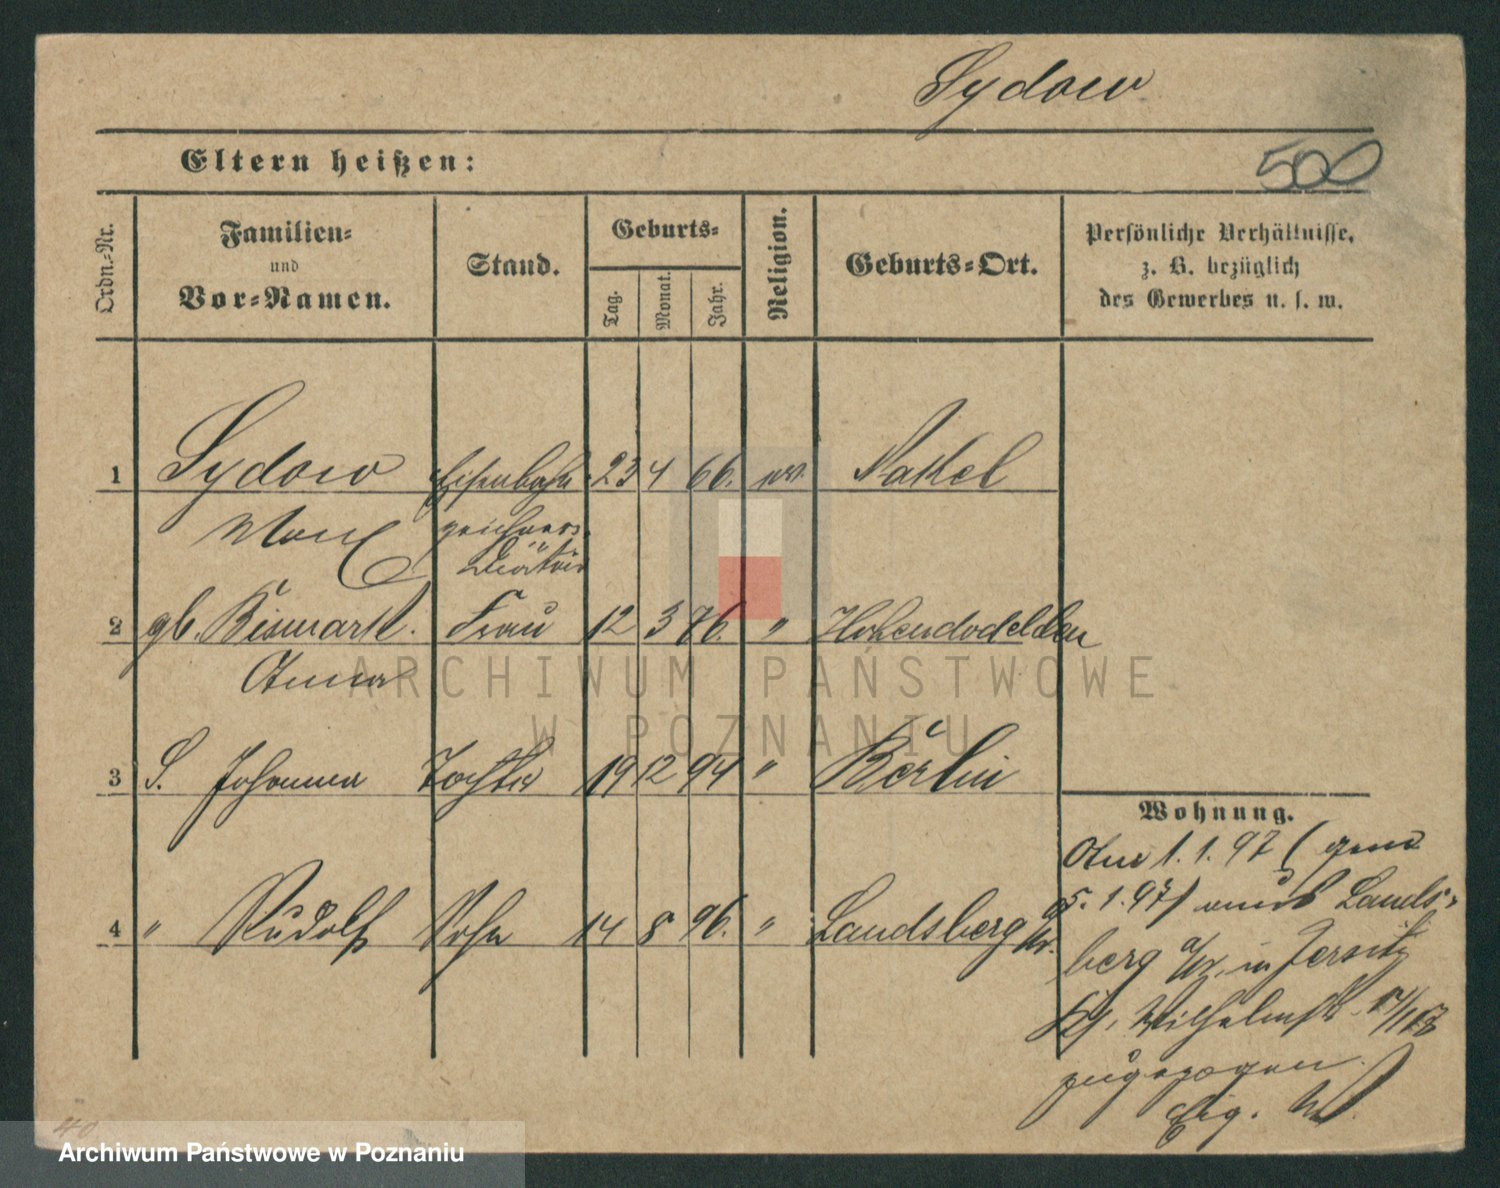 Sydow
Eltern heißen:
500
Ordn.-Nr.
Familien-
und
Vor-Namen.
Stand.
Geburts-
Tag.
Monat.
Jahr.
Religion.
Geburts-Ort.
Persönliche Verhältnisse,
z. B. bezüglich
des Gewerbes u. s. w.
1 Sydow Eisenbahn 23 4 66. ev. Nakel
Max
2 gb. Bismark. Frau 12 3 76. " Hohendodeleben
Anna
ARCHIWUM PAŃSTWOWE
W POZNANIU
3 S. Johanna Tochter 19 12 94 " Berlin
4 " Rudolf Sohn 14 8 96. " Landsberg a/W.
Wohnung.
Am 1. 1. 97 (gem
5. 1. 97) von Lands-
berg a/W. in Jersitz
Ks. Wilhelmstr. 17/18
zugezogen.
Eig. W.
40
Archiwum Państwowe w Poznaniu